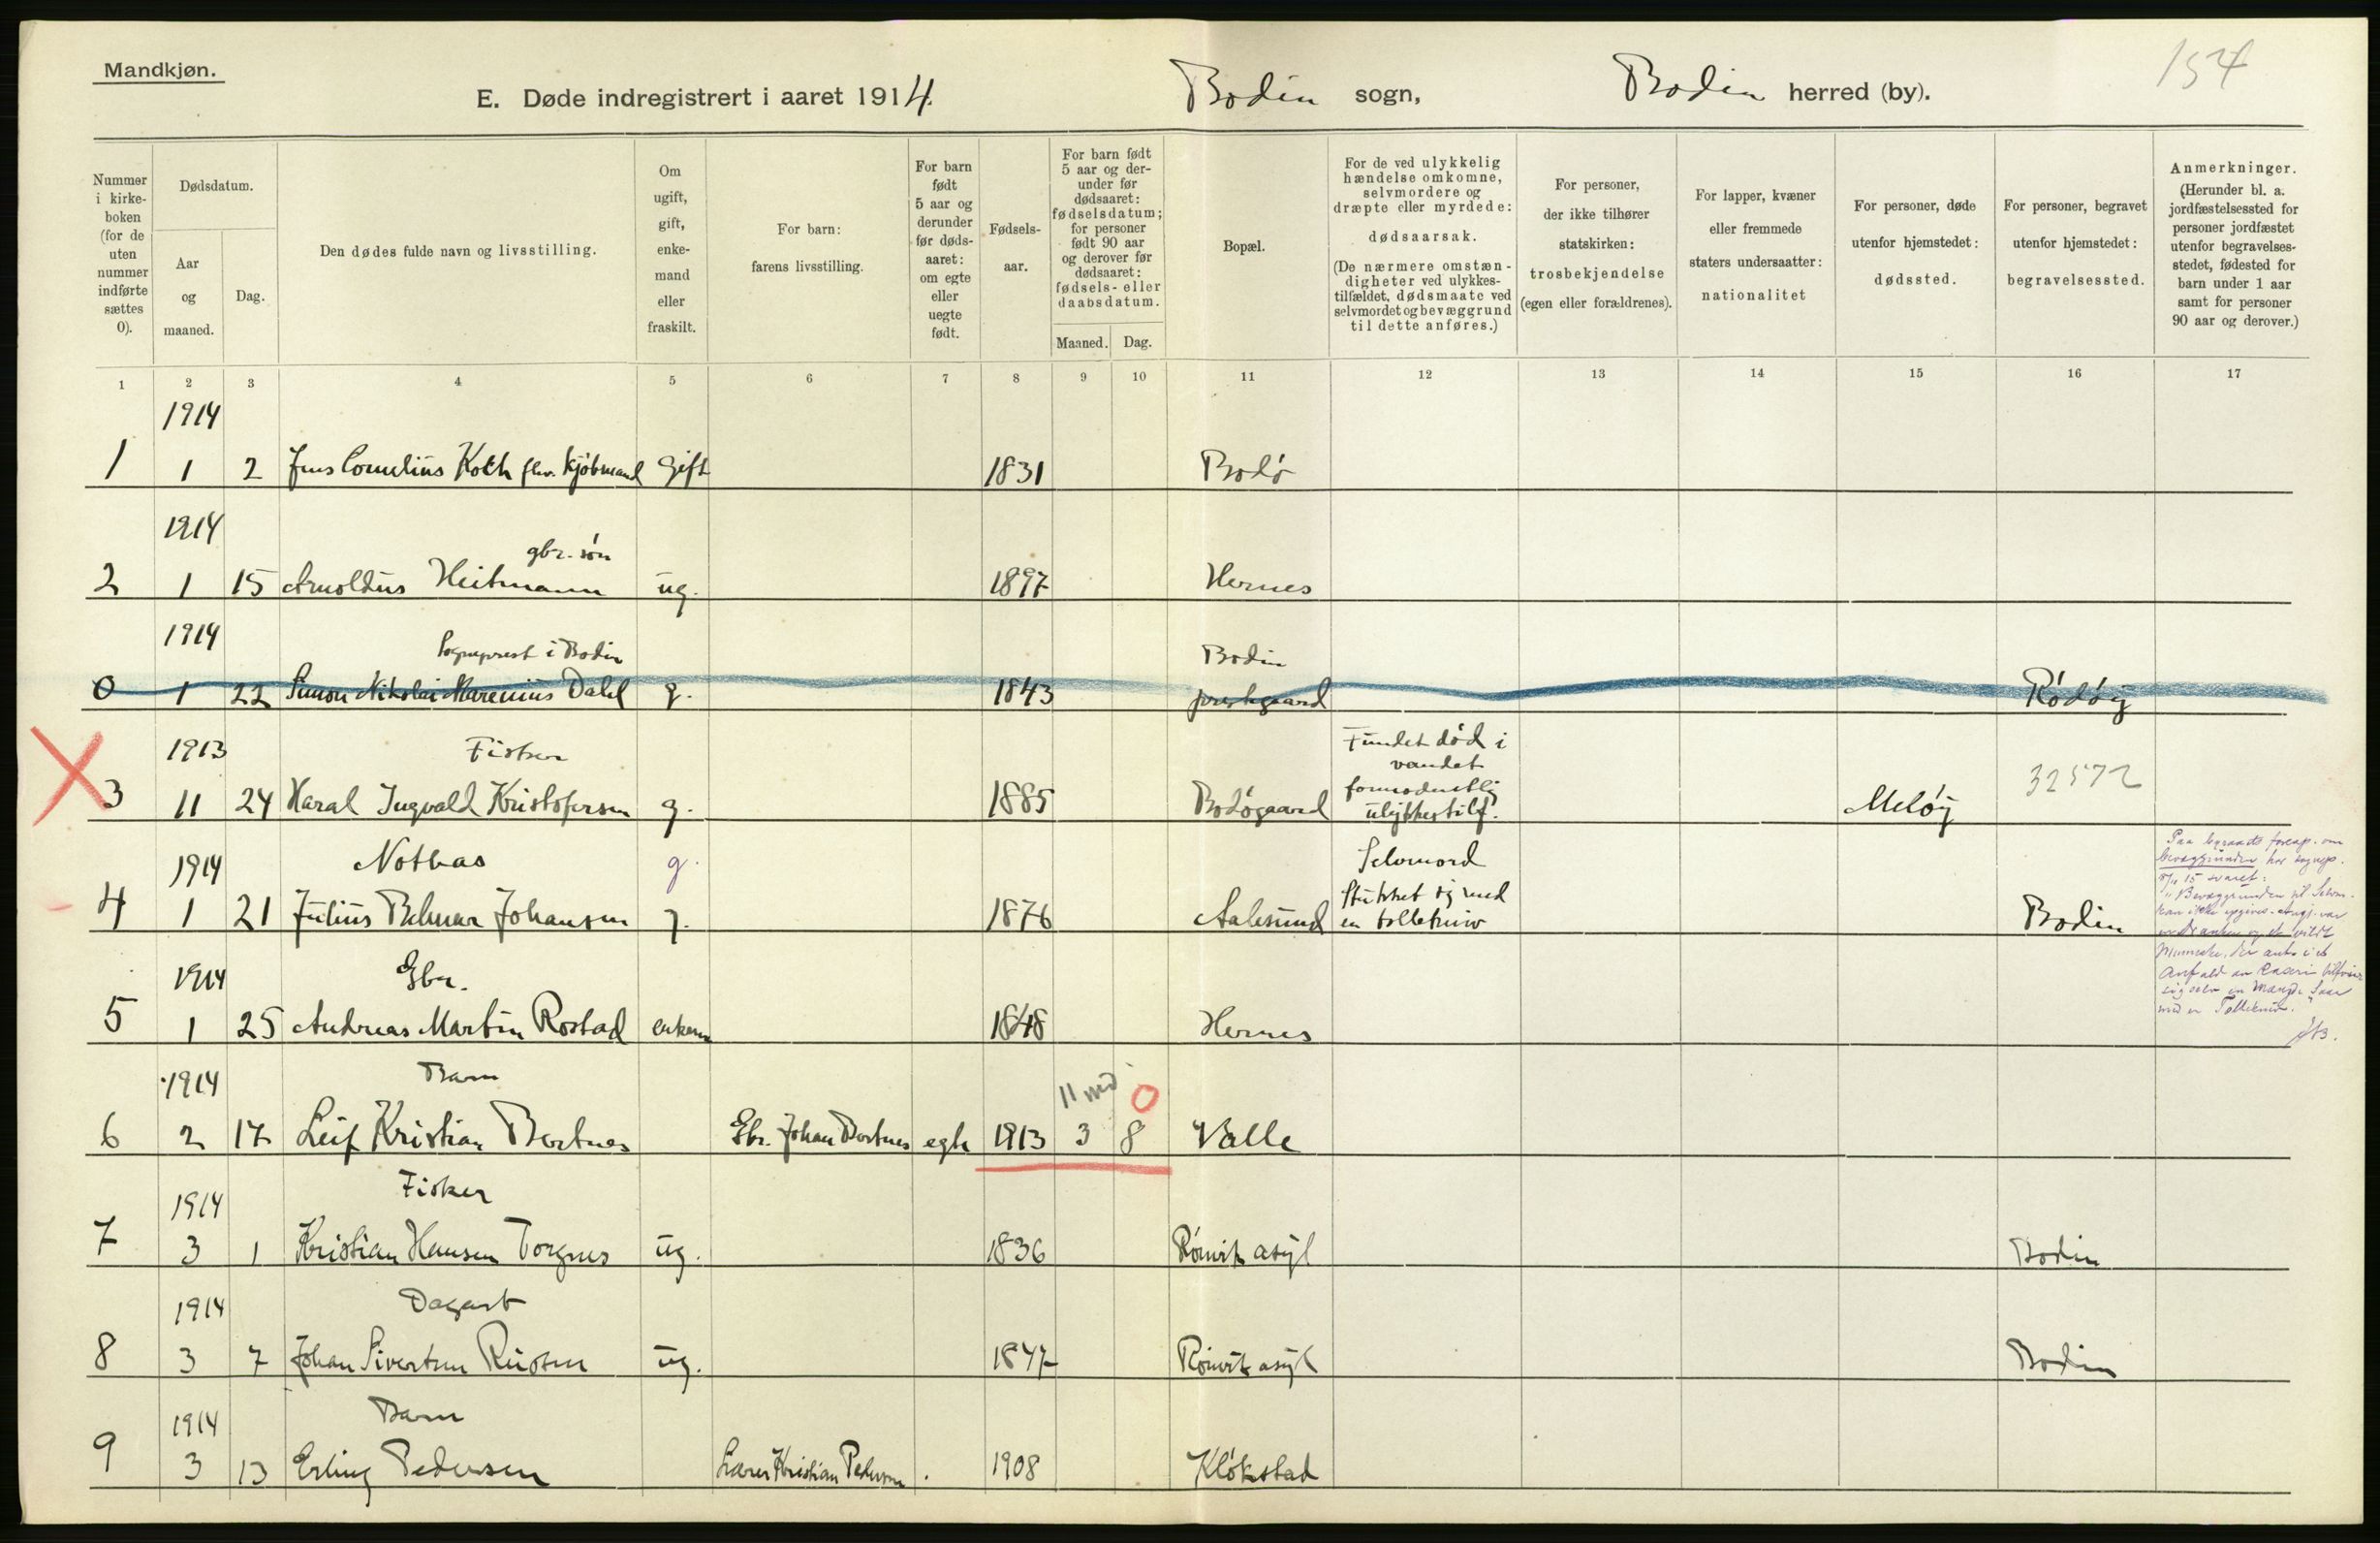 Mandkjøn.
154
E. Døde indregistrert i aaret 1914. Bodin sogn, Bodin herred (by).
Nummer i kirke-boken (for de uten nummer indførte sættes 0).
Dødsdatum.
Aar og maaned.
Dag.
Den dødes fulde navn og livsstilling.
Om ugift, gift, enke-mand eller fraskilt.
For barn: farens livsstilling.
For barn født 5 aar og derunder før døds-aaret: om egte eller uegte født.
Fødsels-aar.
For barn født 5 aar og der-under før dødsaaret: fødselsdatum; for personer født 90 aar og derover før dødsaaret: fødsels- eller daabsdatum.
Maaned. Dag.
Bopæl.
For de ved ulykkelig hændelse omkomne, selvmordere og dræpte eller myrdede: dødsaarsak. (De nærmere omstæn-digheter ved ulykkes-tilfældet, dødsmaate ved selvmordet og bevæggrund til dette anføres.)
For personer, der ikke tilhører statskirken: trosbekjendelse (egen eller forældrenes).
For lapper, kvæner eller fremmede staters undersaatter: nationalitet
For personer, døde utenfor hjemstedet: dødssted.
For personer, begravet utenfor hjemstedet: begravelsessted.
Anmerkninger. (Herunder bl. a. jordfæstelsessted for personer jordfæstet utenfor begravelses-stedet, fødested for barn under 1 aar samt for personer 90 aar og derover.)
1 2 3 4 5 6 7 8 9 10 11 12 13 14 15 16 17
1914
1 1 2 Jens Cornelius Koch fhv. kjøbmand Gift 1831 Bodø
1914 gbr. søn
2 1 15 Arnoldus Heitmann ug. 1897 Hernes
1914 Sogneprest i Bodin Bodin
0 1 22 Simon Nikolai Marenius Dahl g. 1843 prestegaard Rødøy
1913 Fisker Fundet død i
vandet
formodentlig
3 11 24 Haral Ingvald Kristofersen g. 1885 Bodøgaard ulykkestilf. Meløy 32572
1914 Notbas g. Selvmord
Stukket sig med
4 1 21 Julius Belmar Johansen g. 1876 Aalesund en tollekniv Bodin
Paa byraaets foresp. om
bevæggrunden har sognep.
15 svaret:
"Bevæggrunden til Selvm.
kan ikke opgives.
Menneske, der
Anfald av Raseri
sig selv en Mængde Saar
med en Tollekniv."
1914 Gbr.
5 1 25 Andreas Martin Rostad enkem 1848 Hernes
1914 Barn 11 md 0
6 2 17 Leif Kristian Bertnes Gbr. Johan Bertnes egte 1913 3 8 Valle
1914 Fisker
7 3 1 Kristian Hansen Torgnes ug. 1836 Rønvik asyl Bodin
1914 Dagarb
8 3 7 Johan Sivertsen ug. 1847 Rønvik asyl Bodin
1914 Barn
9 3 13 Erling Pedersen Lærer Kristian Pedersen 1908 Kløkstad